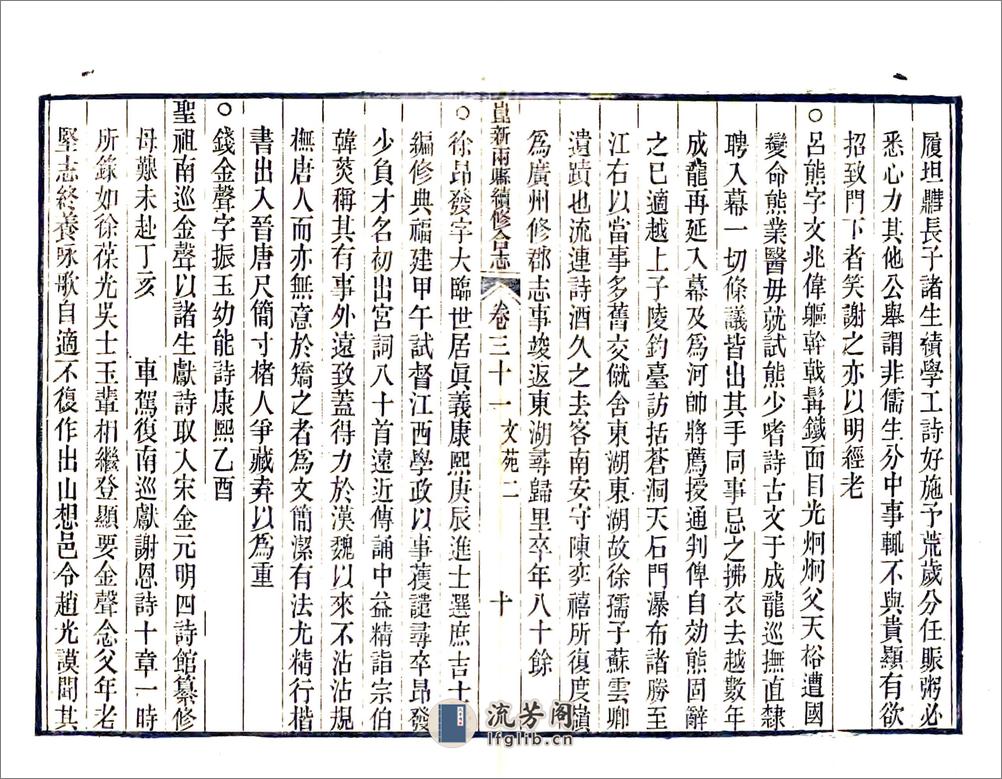 履坦雝長子諸生積學工詩好施予荒歲分任賑粥必
悉心力其他公舉謂非儒生分中事輒不與貴顯有欲
招致門下者笑謝之亦以明經老
○呂熊字文兆偉軀幹戟髯鐵面目光炯炯父天裕遭國
變命熊業醫毋就試熊少嗜詩古文于成龍巡撫直隸
聘入幕一切條議皆出其手同事忌之拂衣去越數年
成龍再延入幕及為河帥將薦授通判俾自効熊固辭
之已適越上子陵釣臺訪括蒼洞天石門瀑布諸勝至
江右以當事多舊交僦舍東湖東湖故徐孺子蘇雲卿
遺蹟也流連詩酒久之去客南安守陳奕禧所復度嶺
為廣州修郡志事竣返東湖尋歸里卒年八十餘
崑新兩縣續修合志 卷三十一 文苑二 十
○徐昂發字大臨世居眞義康熙庚辰進士選庶吉士
編修典福建甲午試督江西學政以事獲譴尋卒昂發
少負才名初出宮詞八十首遠近傳誦中益精詣宗伯
韓菼稱其有事外遠致蓋得力於漢魏以來不沾沾規
橅唐人而亦無意於矯之者為文簡潔有法尤精行楷
書出入晉唐尺簡寸楮人爭藏弆以為重
○錢金聲字振玉幼能詩康熙乙酉
聖祖南巡金聲以諸生獻詩取入宋金元明四詩館纂修
母艱未赴丁亥 車駕復南巡獻謝恩詩十章一時
所錄如徐葆光吳士玉輩相繼登顯要金聲念父年老
堅志終養咏歌自適不復作出山想邑令趙光謨聞其
流芳閣
lfglib.cn